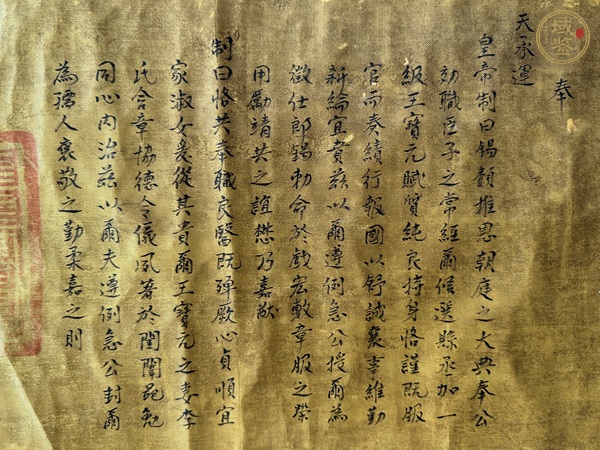 奉
天承運
皇帝制曰錫類推恩朝廷之大典奉公
効職臣子之常經爾候選縣丞加一
級王寶元賦質純良持身恪謹既服
官而奏績行報國以舒誠襄事維勤
新綸宜賁茲以爾遵例急公授爾為
徵仕郎錫勅命於戲宏敷章服之榮
用勵靖共之誼懋乃嘉猷
制曰恪共奉職良醫既殫厥心貞順宜
家淑女爰從其貴爾王寶元之妻李
氏含章協德令儀夙著於閨闈黽勉
同心內治茲以爾夫遵例急公封爾
為孺人襃敬之勤柔嘉之則